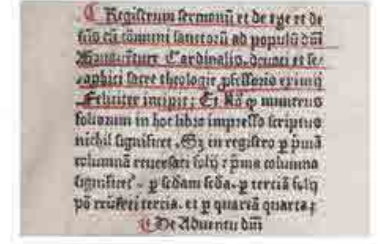 ¶ Registrum sermonū et de tpe et de
scīs cū cōmuni sanctorū ad populū dn̄i
Bonauenture Cardinalis, deuoti et se/
raphici sacre theologie ꝓfessoris eximij
Feliciter incipit; Et
foliorum in hoc libro impresso scriptus
nichil significet. Sꝫ in registro ꝑ pͥmā
columnā reuersati folij : pͥma columna
significet . ꝑ scd̄am scd̄a. ꝑ terciā folij
tercia. et ꝑ quartā quarta ;
¶ De Aduentu dn̄i